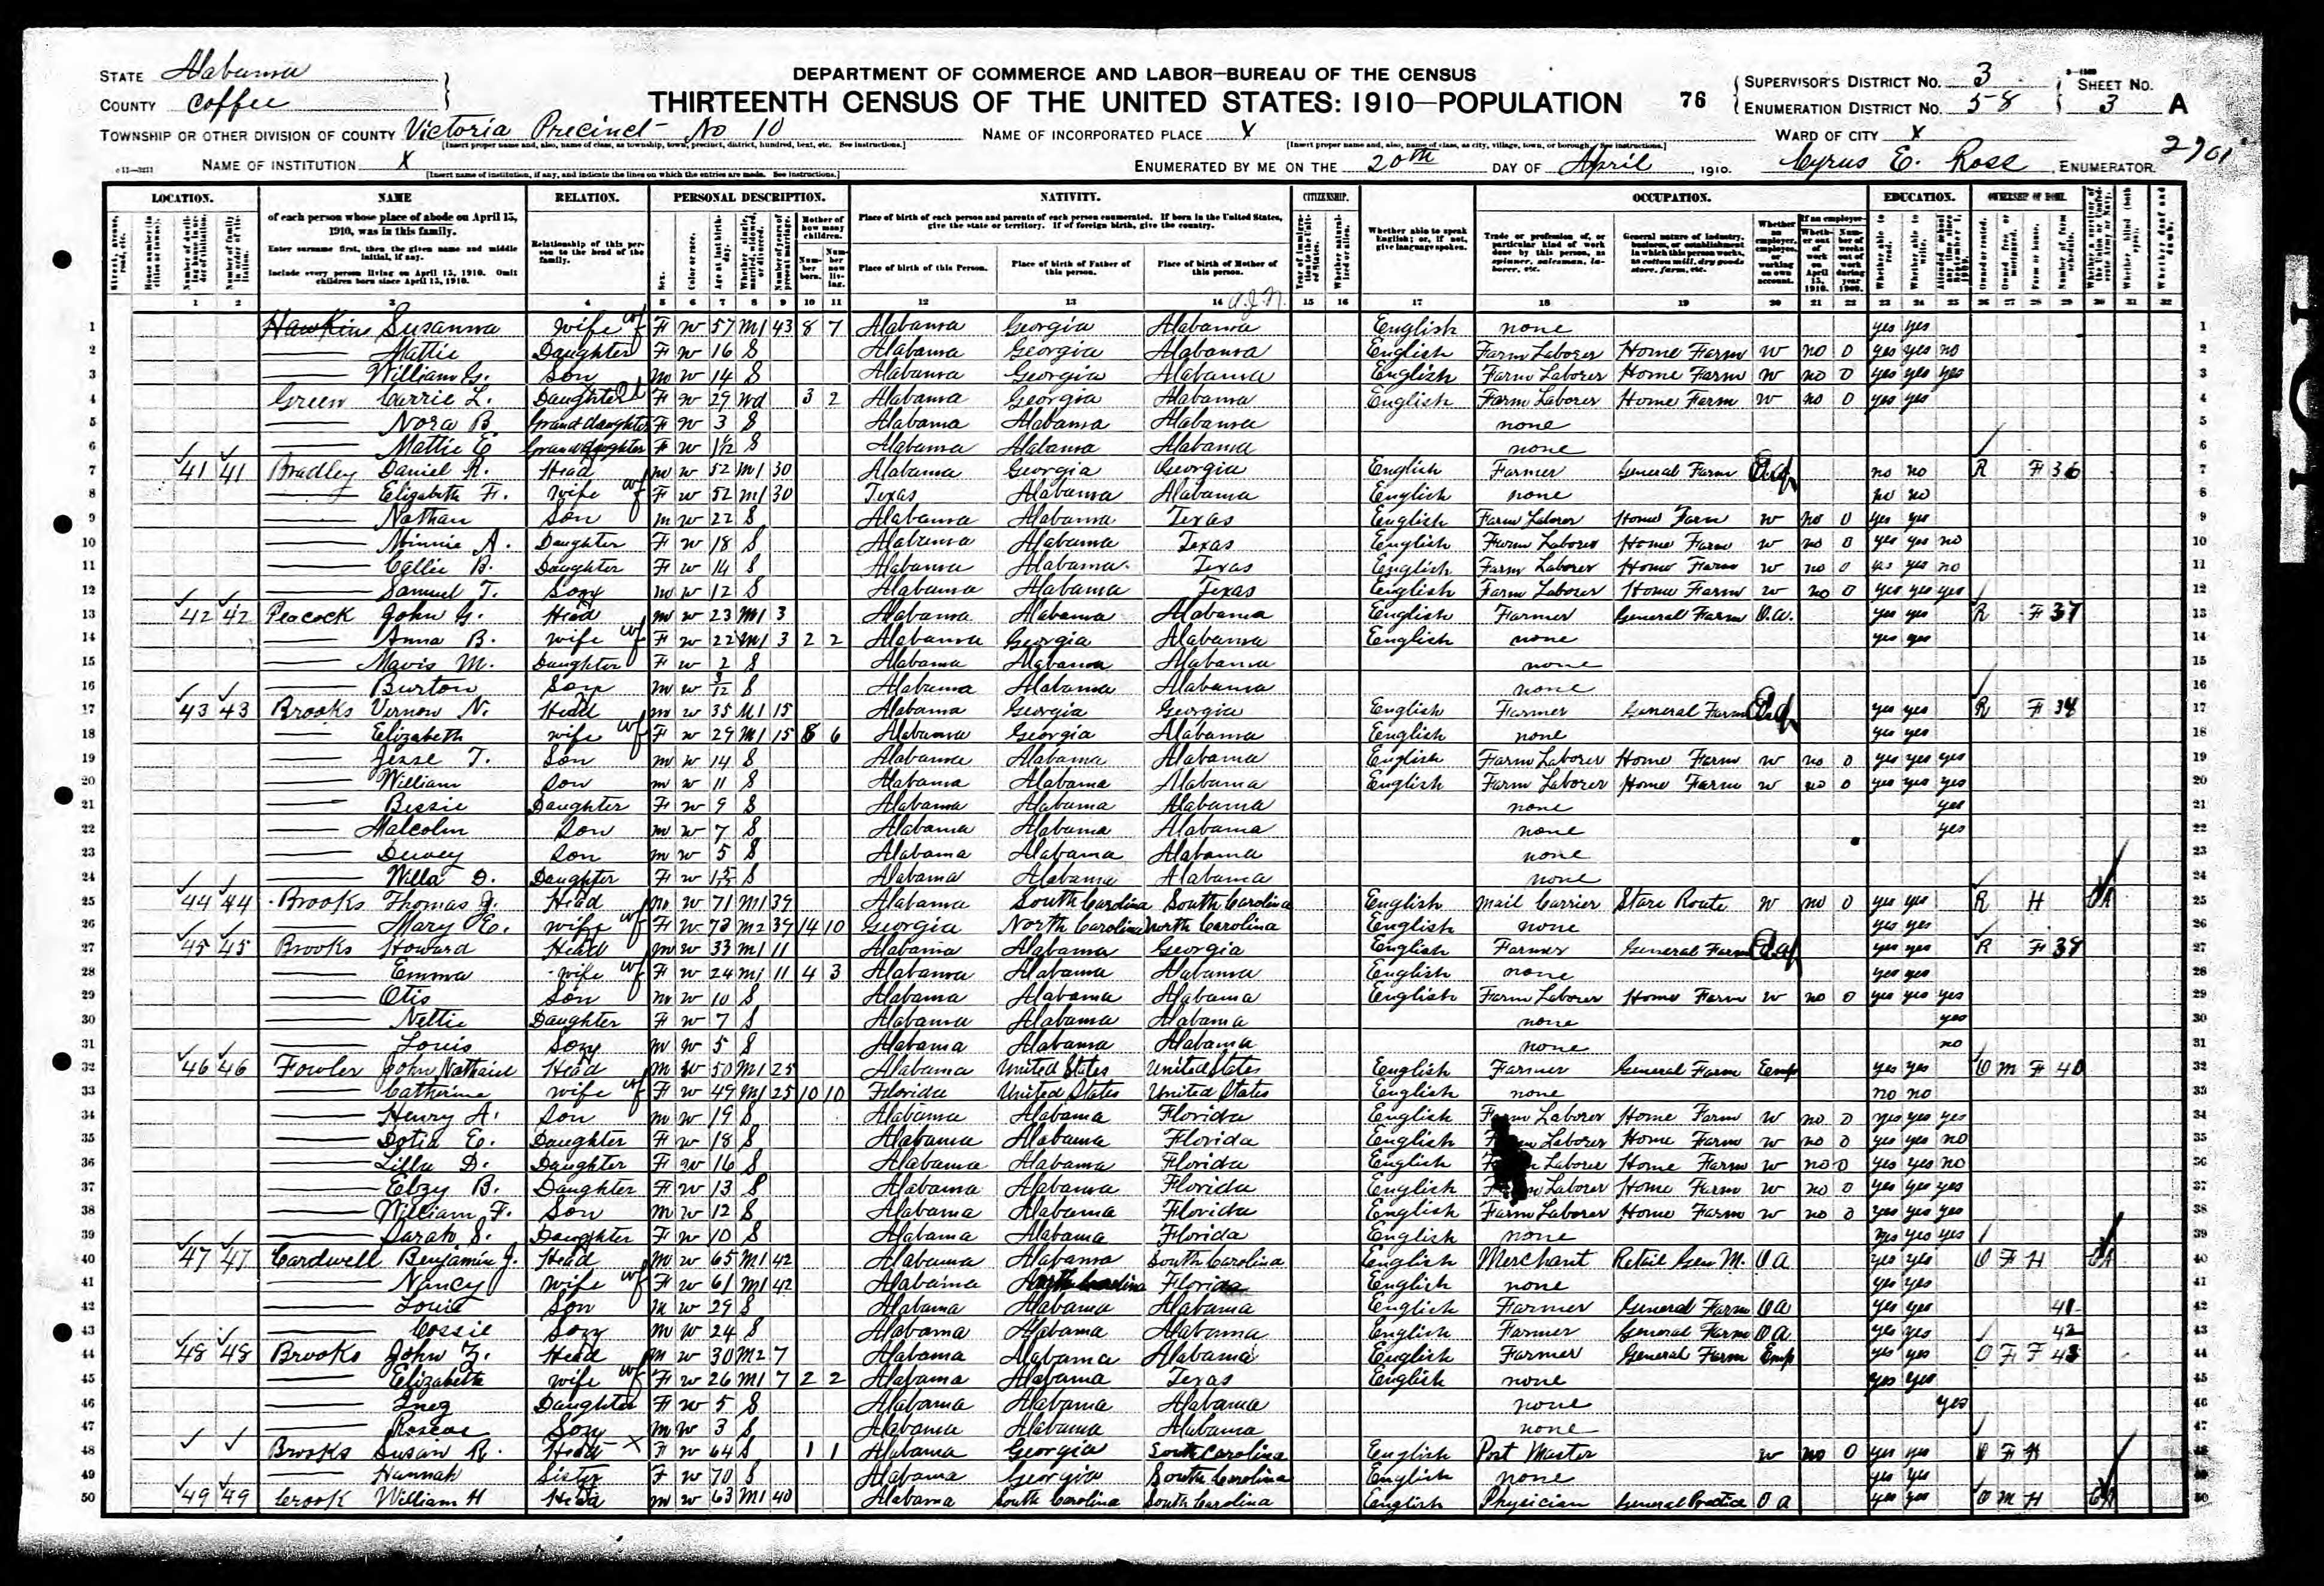 STATE Alabama
COUNTY Coffee
DEPARTMENT OF COMMERCE AND LABOR—BUREAU OF THE CENSUS
THIRTEENTH CENSUS OF THE UNITED STATES: 1910—POPULATION
76
SUPERVISOR'S DISTRICT No. 3
ENUMERATION DISTRICT No. 58
SHEET No. 3 A
TOWNSHIP OR OTHER DIVISION OF COUNTY Victoria Precinct No 10
NAME OF INCORPORATED PLACE X
WARD OF CITY X
NAME OF INSTITUTION X
ENUMERATED BY ME ON THE 20th DAY OF April, 1910.
Cyrus E. Ross, ENUMERATOR.
LOCATION. NAME RELATION. PERSONAL DESCRIPTION. NATIVITY. CITIZENSHIP. OCCUPATION. EDUCATION.
of each person whose place of abode on April 15, 1910, was in this family.
Enter surname first, then the given name and middle initial, if any.
Include every person living on April 15, 1910. Omit children born since April 15, 1910.
Relationship of this person to the head of the family.
Place of birth of each person and parents of each person enumerated. If born in the United States, give the state or territory. If of foreign birth, give the country.
Place of birth of this Person. Place of birth of Father of this person. Place of birth of Mother of this person.
Whether able to speak English; or, if not, give language spoken.
1 Hawkins Susanna Wife F W 57 M1 43 8 7 Alabama Georgia Alabama English none yes yes 1
2 Mattie Daughter F W 16 S Alabama Georgia Alabama English Farm Laborer Home Farm W no 0 yes yes no 2
3 William G. Son M W 14 S Alabama Georgia Alabama English Farm Laborer Home Farm W no 0 yes yes yes 3
4 Green Carrie L. Daughter F W 29 Wd 3 2 Alabama Georgia Alabama English Farm Laborer Home Farm W no 0 yes yes 4
5 Nora B Granddaughter F W 3 S Alabama Alabama Alabama none 5
6 Mattie E Granddaughter F W S Alabama Alabama Alabama none 6
7 41 41 Bradley Daniel R. Head M W 52 M1 30 Alabama Georgia Georgia English Farmer General Farm no no R F 36 7
8 Elizabeth F. Wife F W 52 M1 30 Texas Alabama Alabama English none no no 8
9 Nathan Son M W 22 S Alabama Alabama Texas English Farm Laborer Home Farm W no 0 yes yes 9
10 Minnie A. Daughter F W 18 S Alabama Alabama Texas English Farm Laborer Home Farm W no 0 yes yes no 10
11 Callie B. Daughter F W 14 S Alabama Alabama Texas English Farm Laborer Home Farm W no 0 yes yes no 11
12 Samuel T. Son M W 12 S Alabama Alabama Texas English Farm Laborer Home Farm W no 0 yes yes yes 12
13 42 42 Peacock John G. Head M W 23 M1 3 Alabama Alabama Alabama English Farmer General Farm O.A. yes yes R F 37 13
14 Anna B. Wife F W 22 M1 3 2 2 Alabama Georgia Alabama English none yes yes 14
15 Mavis M. Daughter F W 2 S Alabama Alabama Alabama none 15
16 Burton Son M W S Alabama Alabama Alabama none 16
17 43 43 Brooks Vernon N. Head M W 35 M1 15 Alabama Georgia Georgia English Farmer General Farm yes yes R F 38 17
18 Elizabeth Wife F W 29 M1 15 6 Alabama Georgia Alabama English none yes yes 18
19 Jesse T. Son M W 14 S Alabama Alabama Alabama English Farm Laborer Home Farm W no 0 yes yes yes 19
20 William Son M W 11 S Alabama Alabama Alabama English Farm Laborer Home Farm W no 0 yes yes yes 20
21 Bessie Daughter F W 9 S Alabama Alabama Alabama none yes 21
22 Malcolm Son M W 7 S Alabama Alabama Alabama none yes 22
23 Dewey Son M W 5 S Alabama Alabama Alabama none 23
24 Willa D. Daughter F W S Alabama Alabama Alabama none 24
25 44 44 Brooks Thomas J. Head M W 71 M1 39 Alabama South Carolina South Carolina English Mail Carrier Stare Route W no 0 yes yes R H 25
26 Mary E. Wife F W M2 39 14 10 Georgia North Carolina North Carolina English none yes yes 26
27 45 45 Brooks Howard Head M W 33 M1 11 Alabama Alabama Georgia English Farmer General Farm yes yes R F 39 27
28 Emma Wife F W 24 M1 11 4 3 Alabama Alabama Alabama English none yes yes 28
29 Otis Son M W 10 S Alabama Alabama Alabama English Farm Laborer Home Farm W no 0 yes yes yes 29
30 Nettie Daughter F W 7 S Alabama Alabama Alabama none yes 30
31 Louis Son M W 5 S Alabama Alabama Alabama none no 31
32 46 46 Fowler John Nathaniel Head M W 50 M1 25 Alabama United States United States English Farmer General Farm Emp yes yes O M F 40 32
33 Catherine Wife F W 49 M1 25 10 10 Florida United States United States English none no no 33
34 Henry A. Son M W 19 S Alabama Alabama Florida English Farm Laborer Home Farm W no 0 yes yes yes 34
35 Dotia E. Daughter F W 18 S Alabama Alabama Florida English Farm Laborer Home Farm W no 0 yes yes no 35
36 Lilla D. Daughter F W 16 S Alabama Alabama Florida English Laborer Home Farm W no 0 yes yes no 36
37 Elzy B. Daughter F W 13 S Alabama Alabama Florida English Laborer Home Farm W no 0 yes yes yes 37
38 William F. Son M W 12 S Alabama Alabama Florida English Farm Laborer Home Farm W no 0 yes yes yes 38
39 Sarah S. Daughter F W 10 S Alabama Alabama Florida English none yes yes yes 39
40 47 47 Cardwell Benjamin J. Head M W 65 M1 42 Alabama Alabama South Carolina English Merchant Retail Gen M. O A yes yes O F H 40
41 Nancy Wife F W 61 M1 42 Alabama North Carolina Florida English none yes yes 41
42 Louie Son M W 29 S Alabama Alabama Alabama English Farmer General Farm O A yes yes 41 42
43 Cossie Son M W 24 S Alabama Alabama Alabama English Farmer General Farm O A yes yes 42 43
44 48 48 Brooks John Z. Head M W 30 M2 7 Alabama Alabama Alabama English Farmer General Farm Emp yes yes O F F 43 44
45 Elizabeth Wife F W 26 M1 7 2 2 Alabama Alabama Texas English none yes yes 45
46 Inez Daughter F W 5 S Alabama Alabama Alabama none yes 46
47 Roscoe Son M W 3 S Alabama Alabama Alabama none 47
48 Brooks Susan R. Head X F W 64 S 1 1 Alabama Georgia South Carolina English Post Master W no 0 yes yes O F H 48
49 Hannah Sister F W 70 S Alabama Georgia South Carolina English none yes yes 49
50 49 49 Crook William H Head M W 63 M1 40 Alabama South Carolina South Carolina English Physician General Practice O A yes yes O M H 50